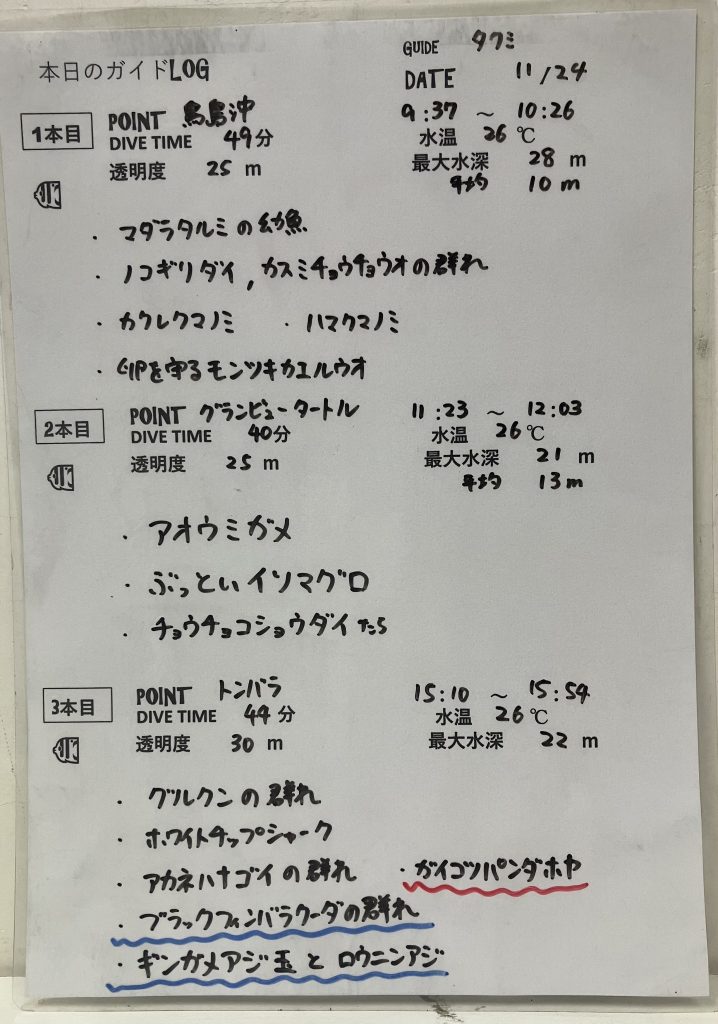 本日のガイドLOG
GUIDE タクミ
DATE 11/24
1本目 POINT 鳥島沖 9:37 ~ 10:26
DIVE TIME 49分 水温 26℃
透明度 25 m 最大水深 28 m
平均 10m
・マダラタルミの幼魚
・ノコギリダイ,カスミチョウチョウオの群れ
・カクレクマノミ ・ハマクマノミ
・卵を守るモンツキカエルウオ
2本目 POINT グランビュータートル 11:23 ~ 12:03
DIVE TIME 40分 水温 26℃
透明度 25 m 最大水深 21 m
平均 13m
・アオウミガメ
・ぶっといイソマグロ
・チョウチョコショウダイたち
3本目 POINT トンバラ 15:10 ~ 15:54
DIVE TIME 44分 水温 26℃
透明度 30 m 最大水深 22 m
・グルクンの群れ
・ホワイトチップシャーク
・アカネハナゴイの群れ ・ガイコツパンダホヤ
・ブラックフィンバラクーダの群れ
・ギンガメアジ玉とロウニンアジ